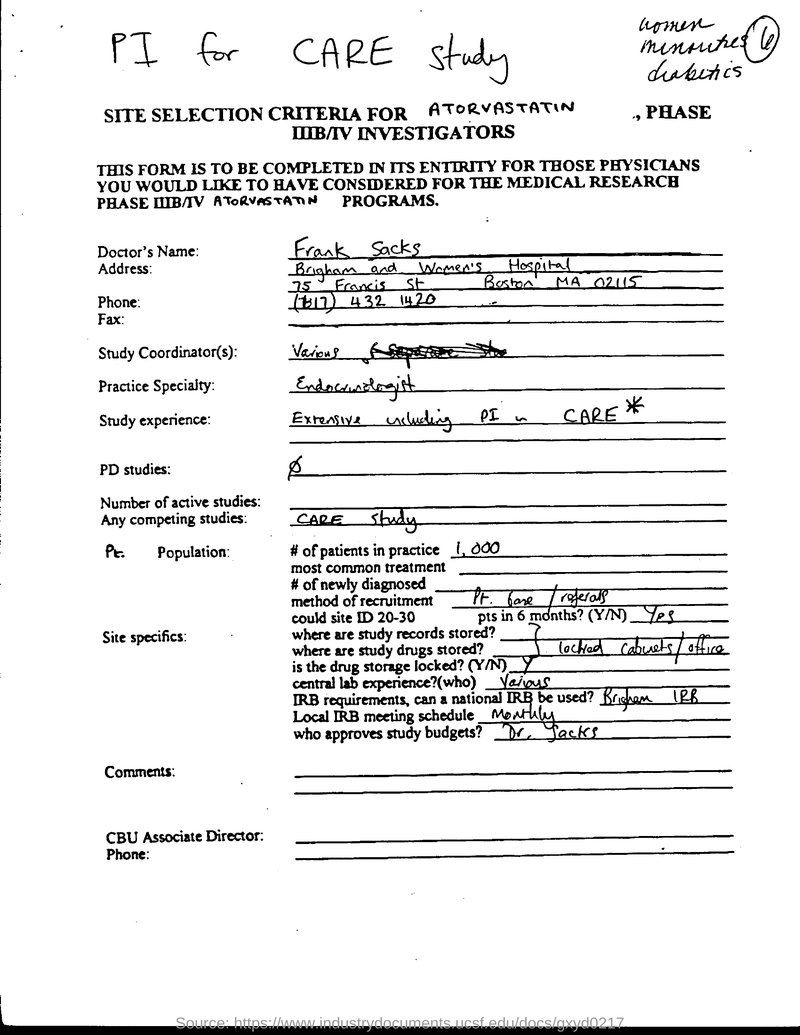 women
PI for CARE study minorities 6
diabetics
SITE SELECTION CRITERIA FOR ATORVASTATIN ., PHASE
IIIB/IV INVESTIGATORS
THIS FORM IS TO BE COMPLETED IN ITS ENTIRITY FOR THOSE PHYSICIANS
YOU WOULD LIKE TO HAVE CONSIDERED FOR THE MEDICAL RESEARCH
PHASE IIIB/IV ATORVASTATIN PROGRAMS.
Doctor's Name: Frank Sacks
Address: Brigham and Women's Hospital
75 Francis St Boston MA 02115
Phone: (617) 432 1420
Fax:
Study Coordinator(s): Various
Practice Specialty: Endocrinologist
Study experience: Extensive including PI in CARE *
PD studies: ∅
Number of active studies:
Any competing studies: CARE Study
Pt. Population: # of patients in practice 1,000
most common treatment
# of newly diagnosed
method of recruitment Pt. base / referals
could site ID 20-30 pts in 6 months? (Y/N) Yes
Site specifics: where are study records stored?
where are study drugs stored? } locked cabinets / office
is the drug storage locked? (Y/N) Y
central lab experience?(who) Various
IRB requirements, can a national IRB be used? Brigham IRB
Local IRB meeting schedule Monthly
who approves study budgets? Dr. Sacks
Comments:
CBU Associate Director:
Phone:
Source: https://www.industrydocuments.ucsf.edu/docs/gxyd0217